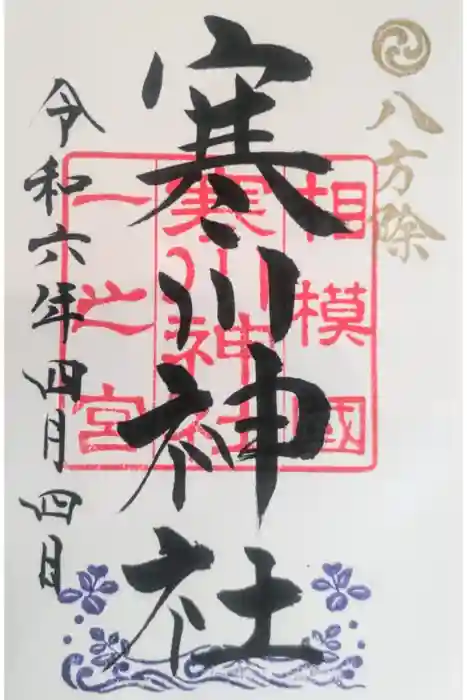 八方除
寒川神社
相模國
寒川神社
一之宮
令和六年四月四日